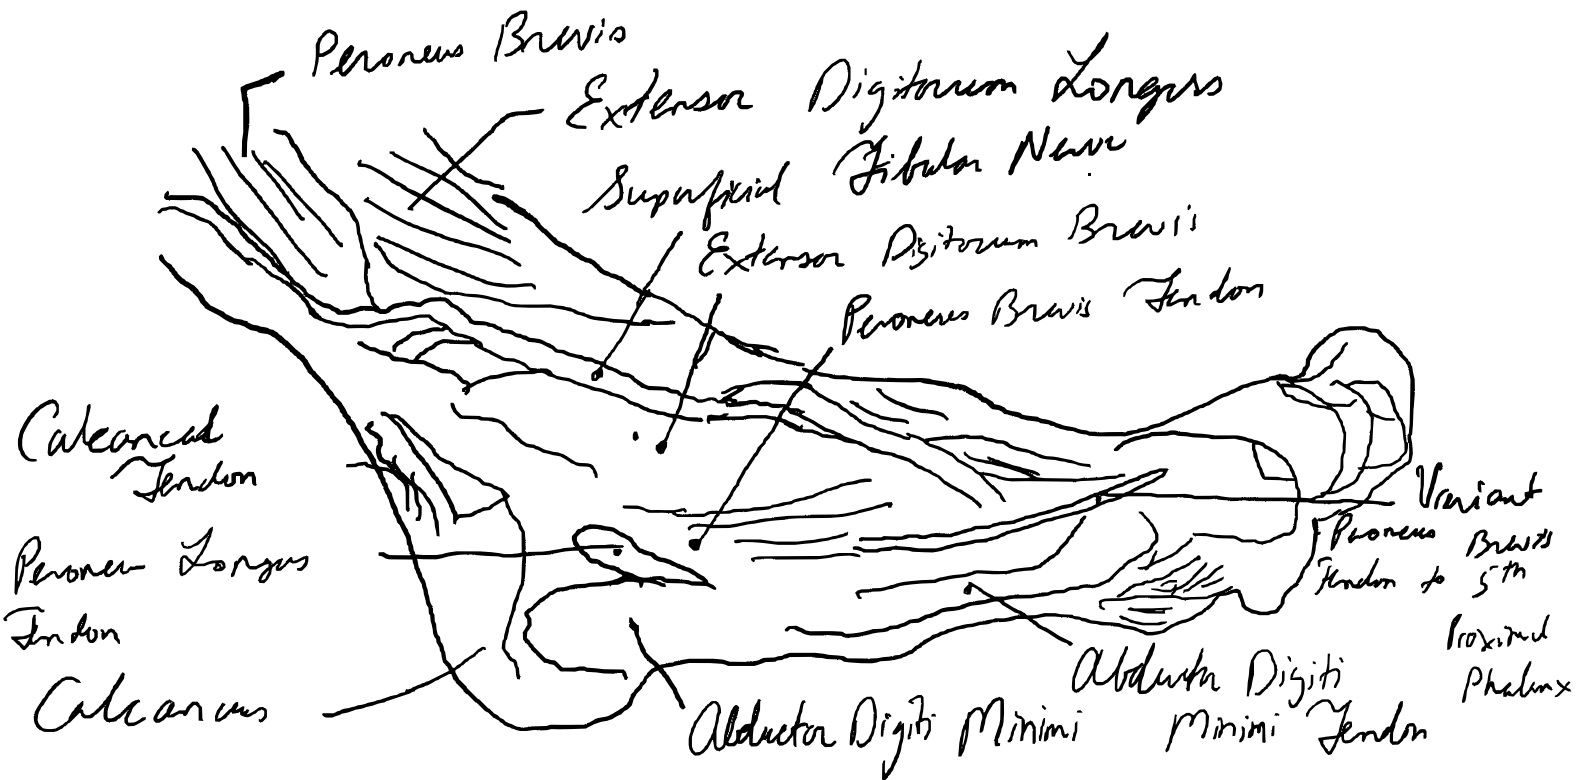 Peroneus Brevis
Extensor Digitorum Longus
Superficial Fibular Nerve
Extensor Digitorum Brevis
Peroneus Brevis Tendon
Calcaneal
Tendon
Peroneus Longus
Tendon
Calcaneus
Abductor Digiti Minimi
Abductor Digiti
Minimi Tendon
Variant
Peroneus Brevis
Tendon to 5th
Proximal
Phalanx